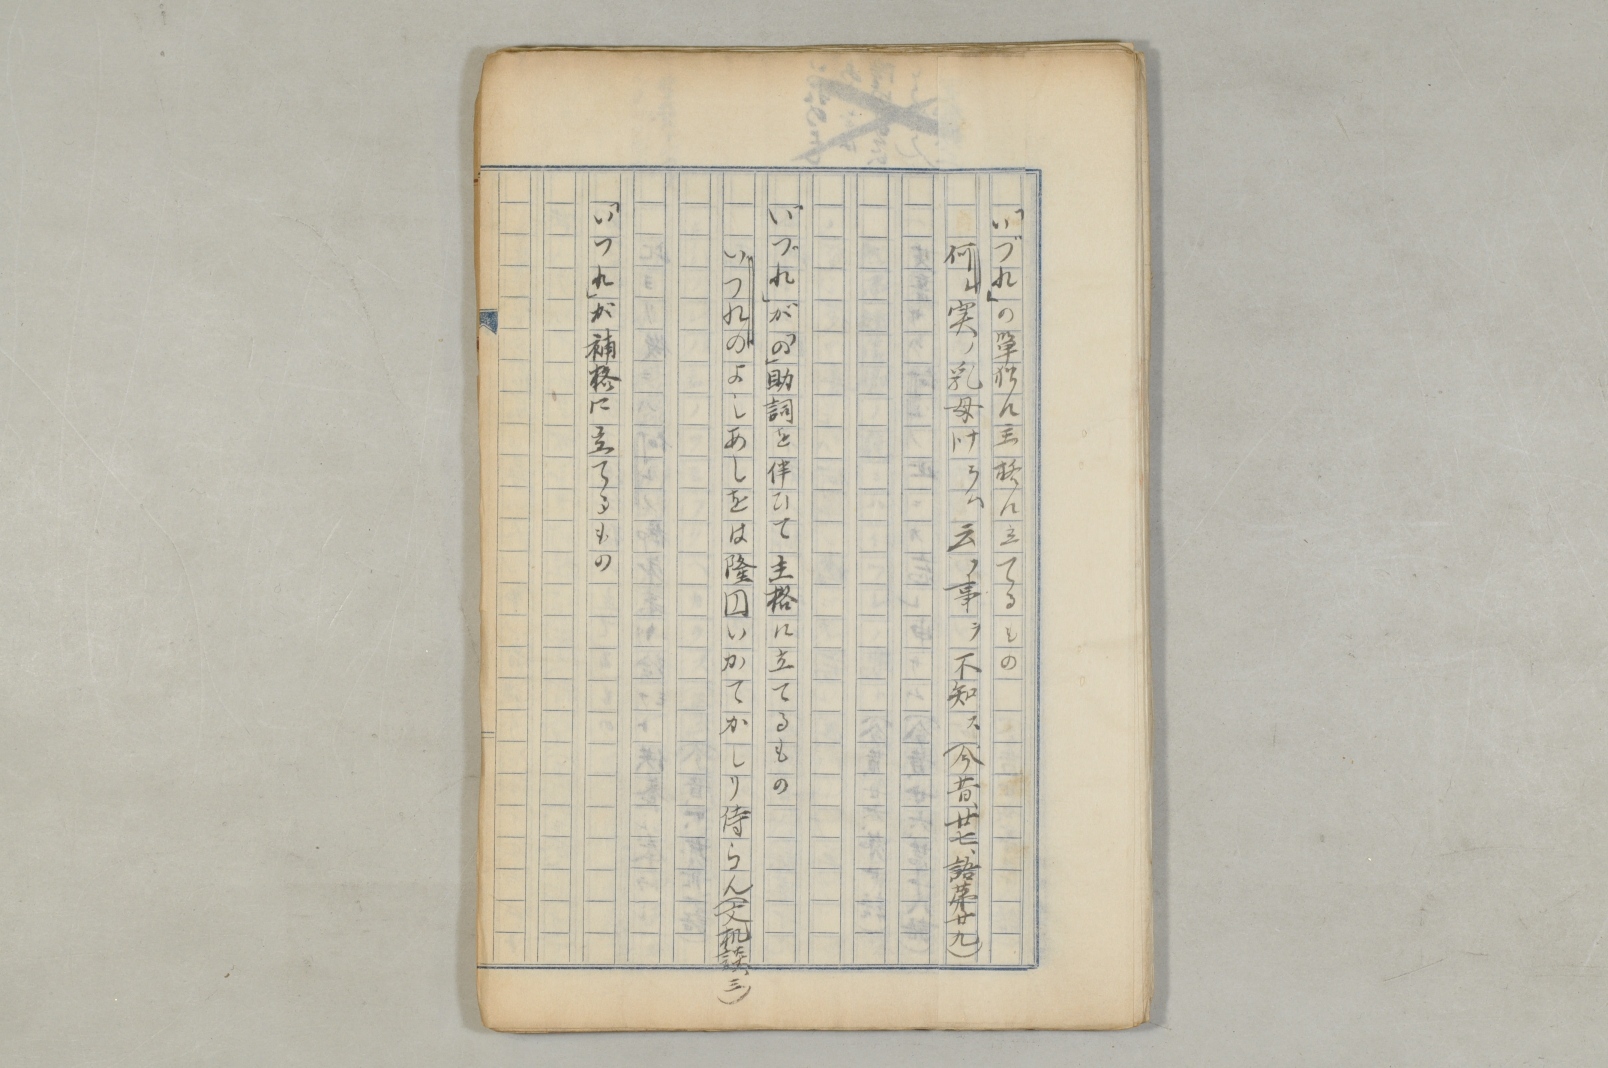 「いづれ」の単独に主格に立てるもの
何レ実ノ乳母ケラハ云フ事ヲ不知ス(今昔、廿七、語第廿九)
「いづれ」が「の」助詞を伴ひて主格に立てるもの
いつれのよしあしをは隆円いかてかしり侍らん(文机談、三)
「いつれ」が補格に立てるもの